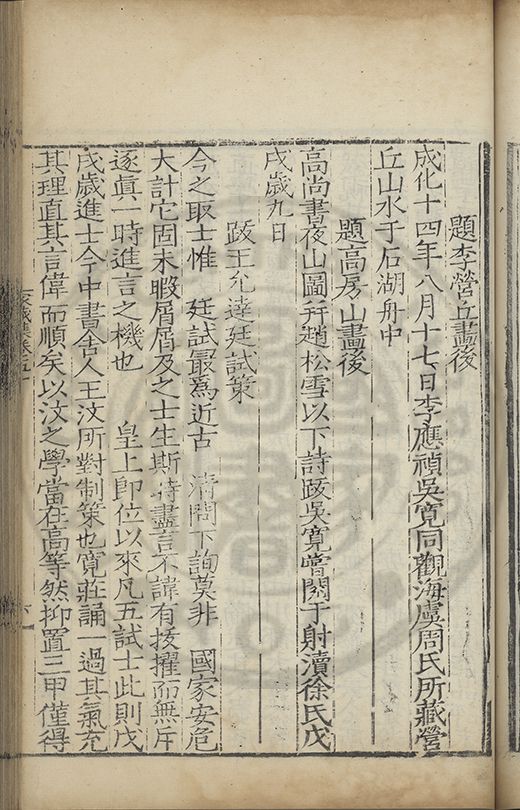 題李營丘畫後
成化十四年八月十七日李應禎吳寬同觀海虞周氏所藏營
丘山水于石湖舟中
題高房山畫後
高尚書夜山圖幷趙松雪以下詩跋吳寬嘗閱于射瀆徐氏戊
戌歲九日
跋王允達廷試策
今之取士惟 廷試最爲近古 清問下詢莫非 國家安危
大計它固未暇屑屑及之士生斯時盡言不諱有拔擢而無斥
逐眞一時進言之機也 皇上即位以來凡五試士此則戊
戌歲進士今中書舍人王汶所對制策也寬莊誦一過其氣充
其理直其言偉而順矣以汶之學當在高等然抑置三甲僅得